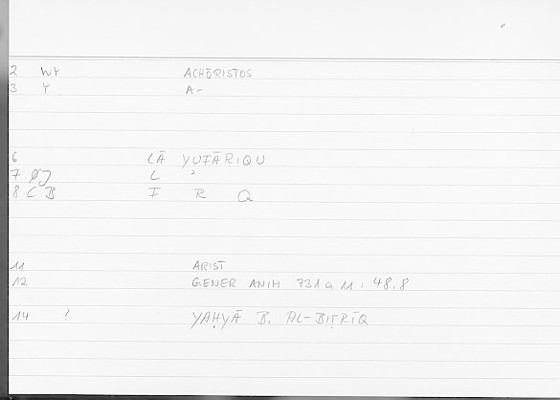 2 WY ACHŌRISTOS
3 Y A-
6 LĀ YUFĀRIQU
7 ØJ L ʾ
8 C B F R Q
11 ARIST
12 GENER ANIM 731a 11 : 48.8
14 ! YAḤYĀ B. AL-BIṬRĪQ